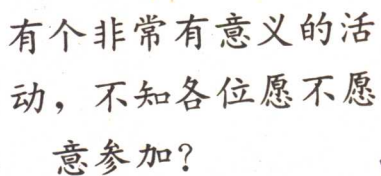 有个非常有意义的活
动，不知各位愿不愿
意参加？